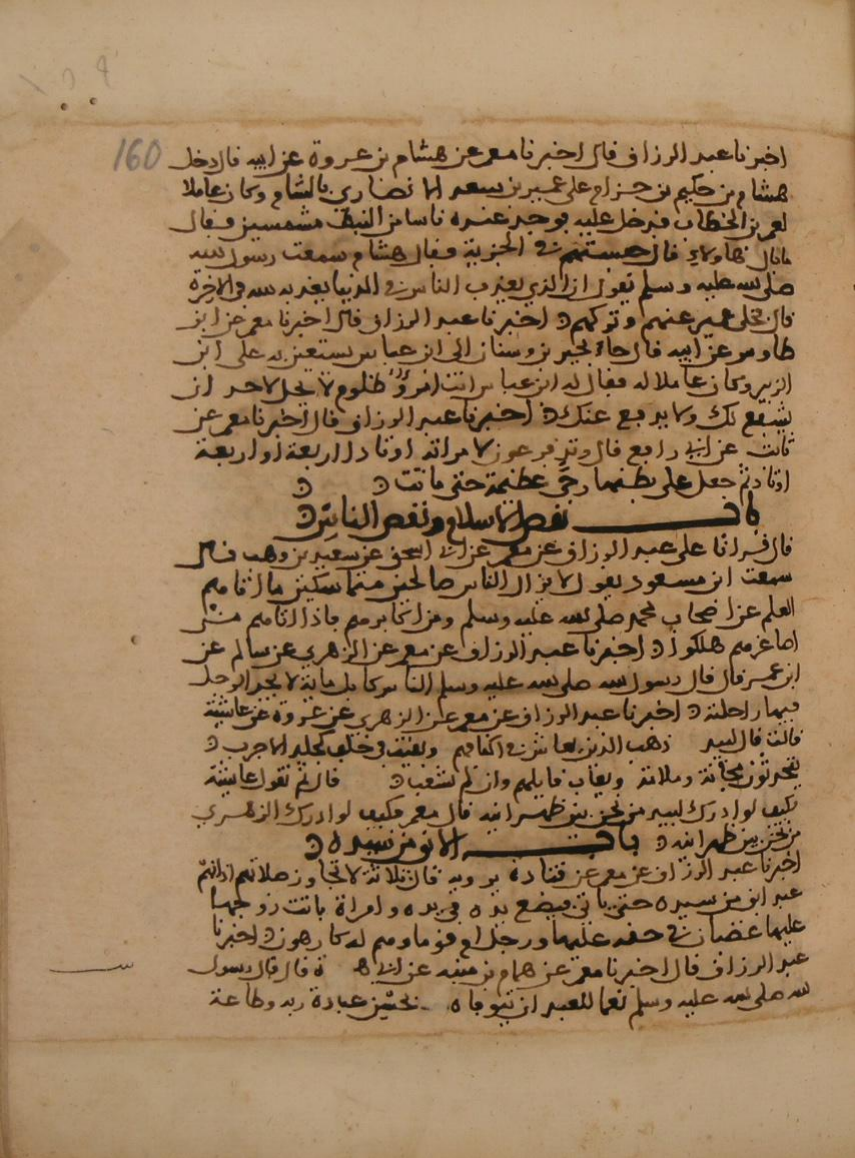 160
اخبرنا عبد الرزاق قال اخبرنا معمر عن هشام بن عروة عن ابيه قال دخل
هشام بن حكيم بن حزام على عمير بن سعد الانصاري بالشام وكان عاملا
لعمر بن الخطاب فدخل عليه فوجد عنده ناسا من النبط مشمسين فقال
ما بال هاولاء قال حبستهم في الجزية فقال هشام سمعت رسول الله
صلى الله عليه وسلم يقول ان الذي يعذب الناس في الدنيا يعذبه الله في الاخرة
قال فخلى عمير عنهم وتركهم اخبرنا عبد الرزاق قال اخبرنا معمر عن ابن
طاوس عن ابيه قال جاء بن وسنان الى ابن عباس يستعين به على ابن
الزبير وكان عاملا له فقال له ابن عباس انت امرؤ ظلوم لا يحل لاحد ان
يشفع لك ولا يدفع عنك اخبرنا عبد الرزاق قال اخبرنا معمر عن
ثابت عن ابي رافع قال وتد فرعون لامراته اوتادا اربعة او اربعة
اوتاد ثم جعل على بطنها رحى عظيمة حتى ماتت
باب نقص الاسلام ونقص الناس
قال قرانا على عبد الرزاق عن معمر عن ابي اسحق عن سعيد بن وهب قال
سمعت ابن مسعود يقول لا يزال الناس صالحين متماسكين ما اتاهم
العلم عن اصحاب محمد صلى الله عليه وسلم ومن اكابرهم فاذا اتاهم من
اصاغرهم هلكوا اخبرنا عبد الرزاق عن معمر عن الزهري عن سالم عن
ابن عمر قال قال رسول الله صلى الله عليه وسلم الناس كابل ماية لا يجد الرجل
فيها راحلة اخبرنا عبد الرزاق عن معمر عن الزهري عن عروة عن عايشة
قالت قال لبيد ذهب الذين يعاش في اكنافهم وبقيت في خلف كجلد الاجرب
يتحدثون مخانة وملامة ويعاب قايلهم وان لم يشغب قال ثم تقول عايشة
فكيف لو ادرك لبيد من نحن بين ظهرانيه قال معمر فكيف لو ادرك الزهري
من نحن بين ظهرانيه باب الابق من سيده
اخبرنا عبد الرزاق عن معمر عن قتادة يرويه قال ثلاثة لا تجاوز صلاتهم اذانهم
عبد ابق من سيده حتى ياتي فيضع يده في يده وامراة باتت زوجها
عليها غضبان في حقه عليها ورجل ام قوما وهم له كارهون اخبرنا
عبد الرزاق قال اخبرنا معمر عن همام بن منبه عن ابي هـ ة قال قال رسول
الله صلى الله عليه وسلم نعما للعبد ان يتوفاه بحسن عبادة ربه وطاعة